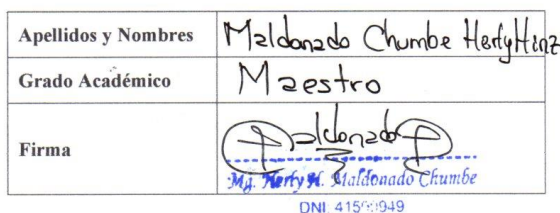 Apellidos y Nombres Maldonado Chumbe Herly Hinz
Grado Académico Maestro
Firma Maldonado
Mg. Herly H. Maldonado Chumbe
DNI: